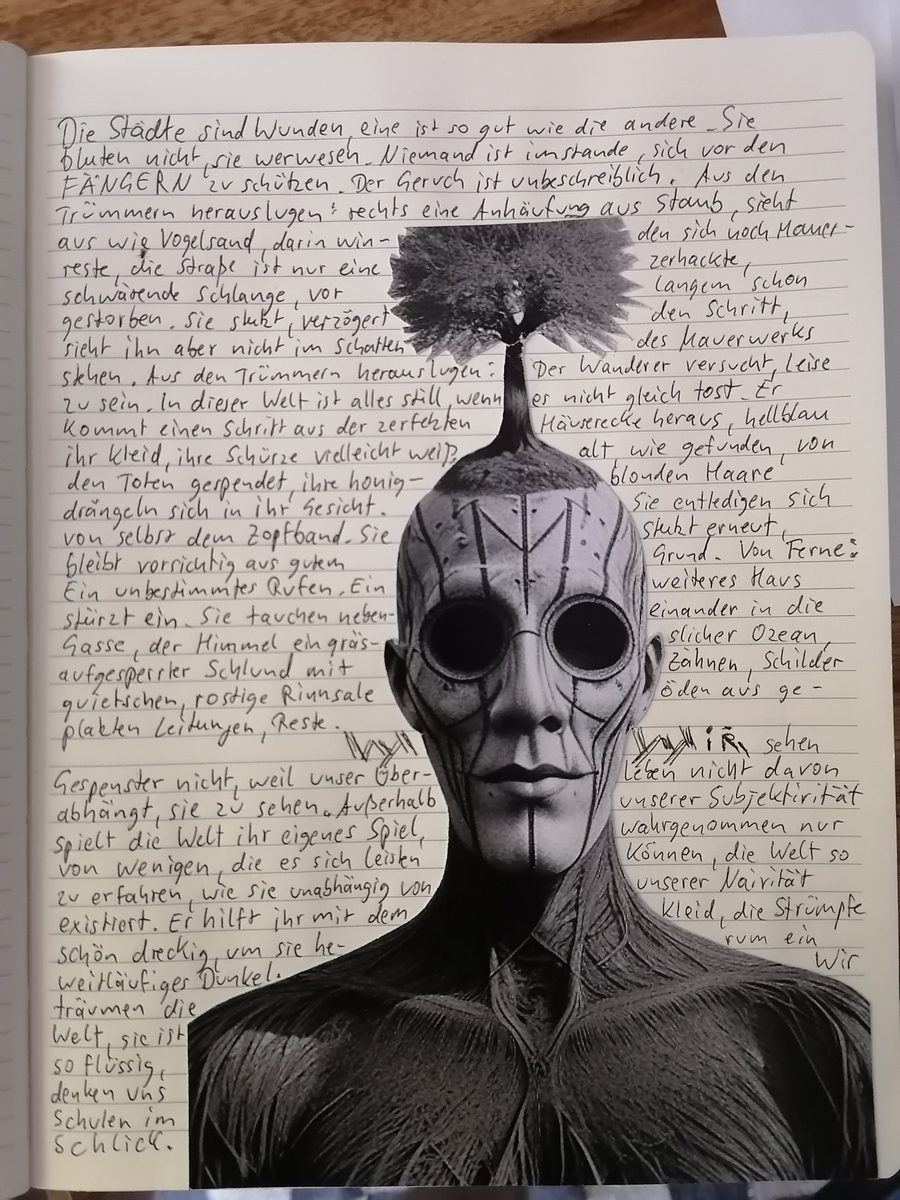 Die Städte sind Wunden, eine ist so gut wie die andere. Sie
bluten nicht, sie werwesen. Niemand ist imstande, sich vor den
FÄNGERN zu schützen. Der Geruch ist unbeschreiblich. Aus den
Trümmern herauslugen: rechts eine Anhäufung aus Staub, sieht
aus wie Vogelsand, darin win- den sich noch Mauer-
reste, die Straße ist nur eine zerhackte,
schwärende Schlange, vor langem schon
gestorben. Sie stutzt, verzögert den Schritt,
sieht ihn aber nicht im Schatten des Mauerwerks
stehen. Aus den Trümmern herauslugen: Der Wanderer versucht, leise
zu sein. In dieser Welt ist alles still, wenn es nicht gleich tost. Er
kommt einen Schritt aus der zerfetzten Häuserecke heraus, hellblau
ihr Kleid, ihre Schürze vielleicht weiß, alt, wie gefunden, von
den Toten gespendet, ihre honig- blonden Haare
drängeln sich in ihr Gesicht. Sie entledigen sich
von selbst dem Zopfband. Sie stutzt erneut,
bleibt vorsichtig aus gutem Grund. Von Ferne:
Ein unbestimmtes Rufen. Ein weiteres Haus
stürzt ein. Sie tauchen neben- einander in die
Gasse, der Himmel ein gräs- slicher Ozean,
aufgesperrter Schlund mit Zähnen, Schilder
quietschen, rostige Rinnsale öden aus ge-
plakten Leitungen, Reste.
WIR, sehen
Gespenster nicht, weil unser Über- leben nicht davon
abhängt, sie zu sehen. Außerhalb unserer Subjektivität
spielt die Welt ihr eigenes Spiel, wahrgenommen nur
von wenigen, die es sich leisten können, die Welt so
zu erfahren, wie sie unabhängig von unserer Naivität
existiert. Er hilft ihr mit dem Kleid, die Strümpfe
schön dreckig, um sie he- rum ein
weitläufiges Dunkel. Wir
träumen die
Welt, sie ist
so flüssig,
denken uns
Schulen im
Schlick.